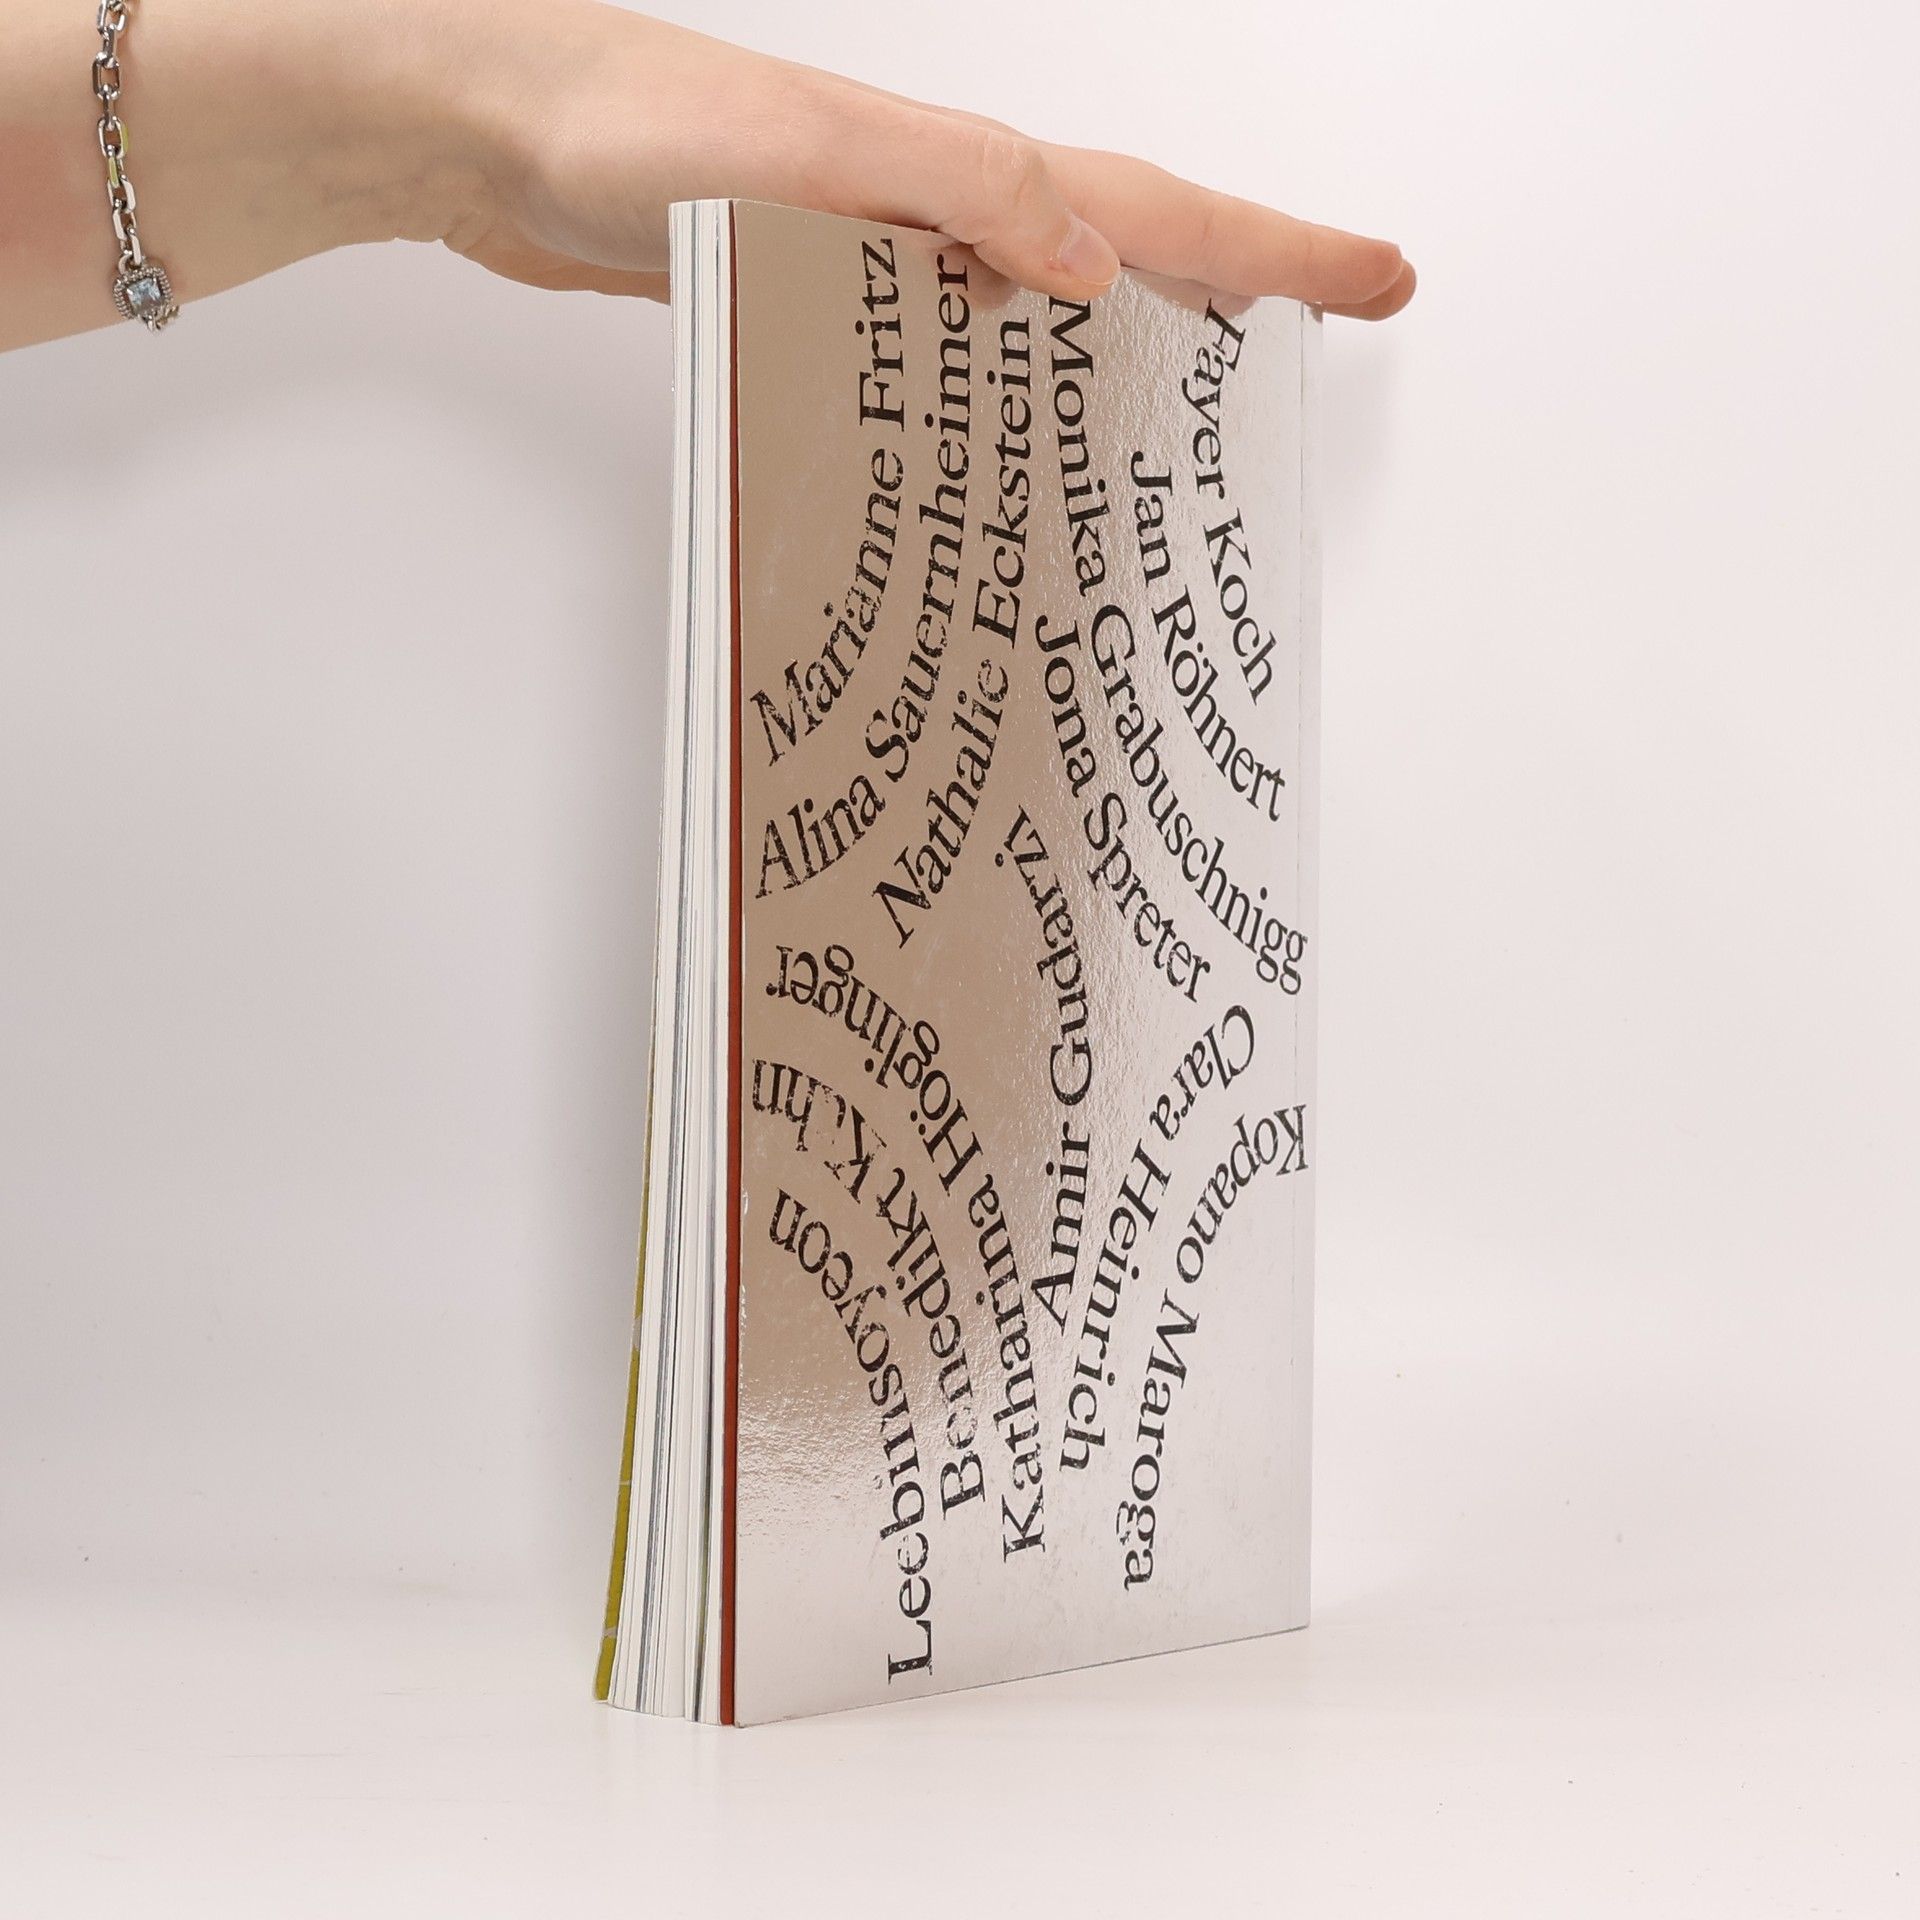 Marianne Fritz
Alina Sauernheimer
Nathalie Eckstein
Monika Grabuschnigg
Fayer Koch
Jan Röhnert
Jona Spreter
Amir Gudarzi
Katharina Höglinger
Benedikt Kuhn
Leebinsoyeon
Clara Heinrich
Kopano Maroga